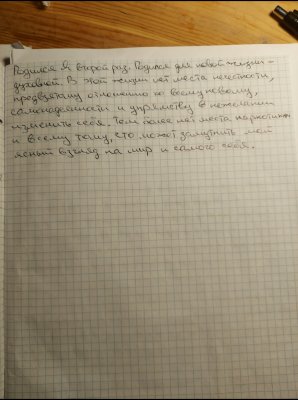 Родился я второй раз. Родился для новой жизни -
духовной. В этой жизни нет места нечестности,
предвзятому отношению ко всему новому,
самонадеянности и упрямству в нежелании
изменить себя. Тем более нет места наркотикам
и всему тому, что может замутнить мой
ясный взгляд на мир и самого себя.